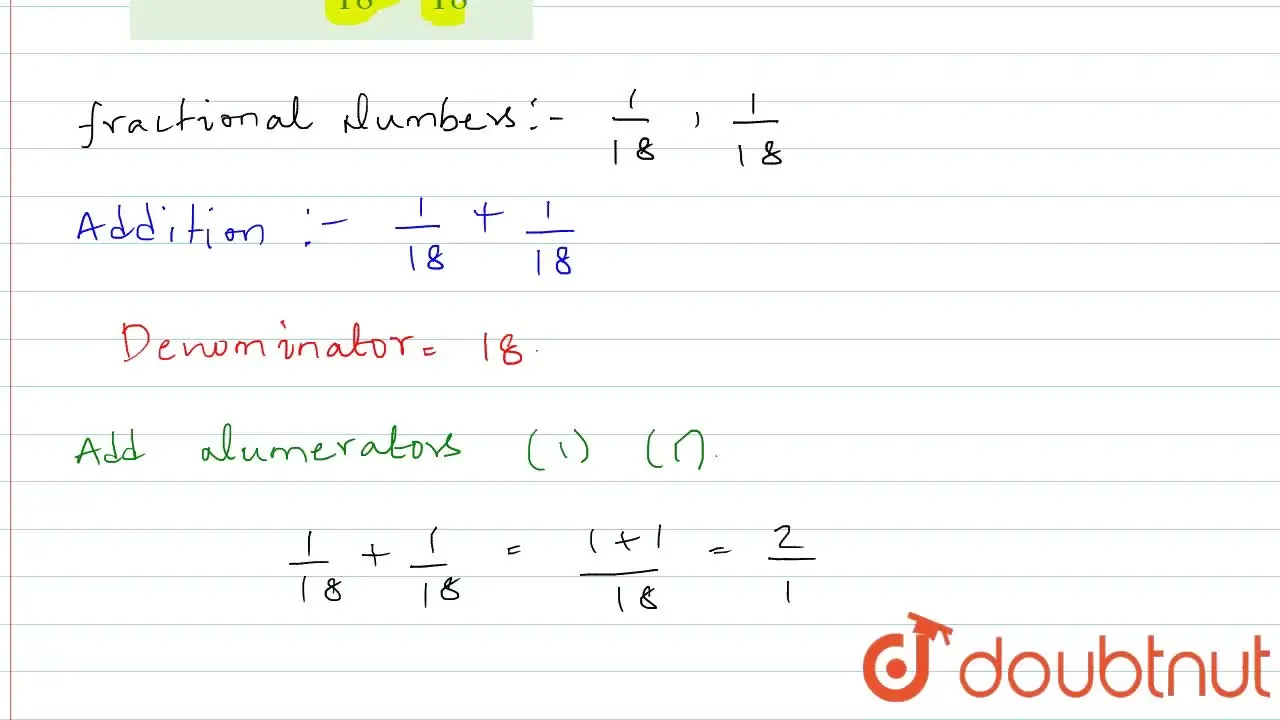 18 18
fractional Numbers:- 1/18 , 1/18
Addition :- 1/18 + 1/18
Denominator = 18
Add Numerators (1) (1)
1/18 + 1/18 = 1+1/18 = 2/1
doubtnut